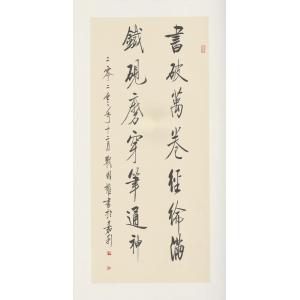 書破萬卷經綸滿
鐵硯磨穿筆通神
二零二零年十二月戴明賢書於貴州